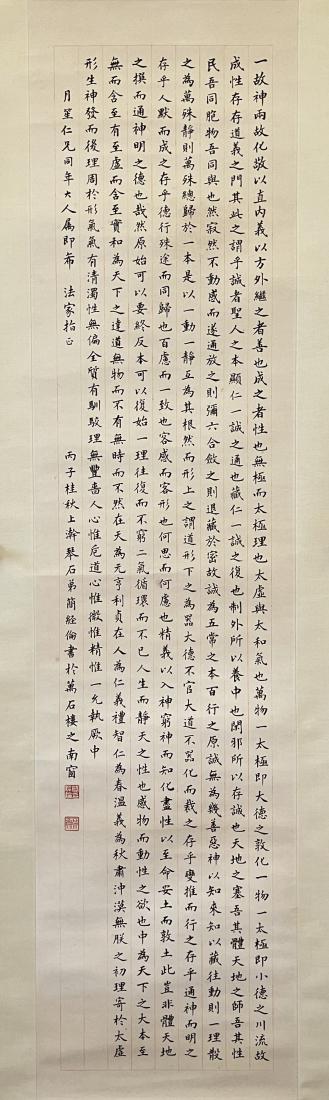 一故神兩故化敬以直內義以方外繼之者善也成之者性也無極而太極理也太虛與太和氣也萬物一太極即大德之敦化一物一太極即小德之川流故
成性存存道義之門其此之謂乎誠者聖人之本顯仁一誠之通也藏仁一誠之復也制外所以養中也閑邪所以存誠也天地之塞吾其體天地之師吾其性
民吾同胞物吾同與也然寂然不動感而遂通放之則彌六合斂之則退藏於密故誠為五常之本百行之原誠無為幾善惡神以知來知以藏往動則一理散
之為萬殊靜則萬殊總歸於一本是以一動一靜互為其根然而形上之謂道形下之為器大德不官大道不器化而裁之存乎變推而行之存乎通神而明之
存乎人默而成之存乎德行殊途而同歸也百慮而一致也容感而客形也何思而何慮也精義以入神窮神而知化盡性以至命安土而敦土此豈非體天地
之撰而通神明之德也哉然原始可以要終反本可以復始一理往復而不窮二氣循環而不已人生而靜天之性也感物而動性之欲也中為天下之大本至
無而含至有至虛而含至實和為天下之達道無物而不有無時而不然在天為元亨利貞在人為仁義禮智仁為春溫義為秋肅沖漠無朕之初理寄於太虛
形生神發而後理周於形氣氣有清濁性無偏全質有馴駁理無豐嗇人心惟危道心惟微惟精惟一允執厥中
月笙仁兄同年大人属即希 法家指正
丙子桂秋上澣琴石弟簡經倫書於萬石樓之南窗